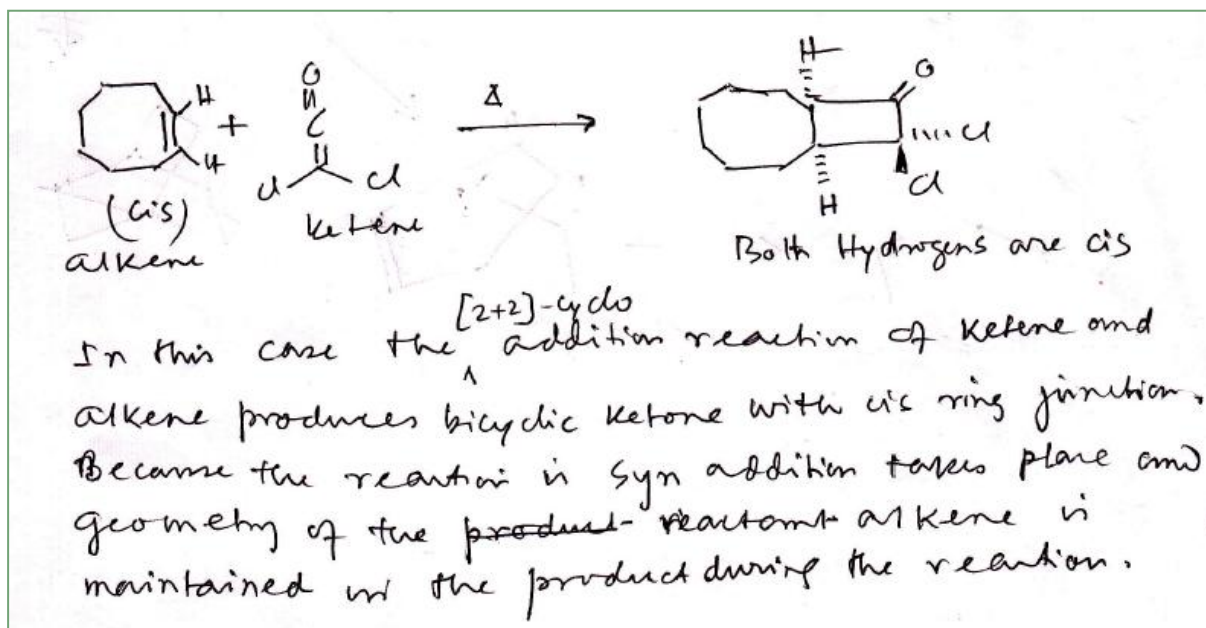 H
O
H
O
||
C
||
Δ
+
Cl
H
Cl
Cl
Cl
H
(cis)
alkene
ketene
Both Hydrogens are cis
[2+2]-cyclo
In this case the ^ addition reaction of ketene and
alkene produces bicyclic ketone with cis ring junction.
Because the reaction is syn addition takes place and
geometry of the product reactant alkene is
maintained in the product during the reaction.